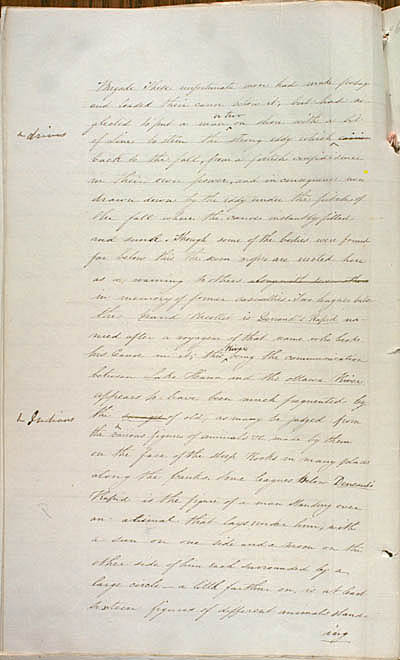 Brigade These unfortunate men had made portage
and loaded their canoe below it, but had ne
glected to put a man or two on shore with a bit
of line to stem the strong eddy which
x drives
back to the fall, from a foolish confidence
in their own power, and in consequence were
drawn down by the eddy under the pitch of
the fall where the canoe instantly filled
and sunk. Though some of the bodies were found
far below this the crosses are erected here
as a warning to others
in memory of former casualties. Two leagues below
this Grand Recollet is Derraud's Rapid na
med after a voyageur of that name who broke
his Canoe in it; this River being the communication
between Lake Huron and the Ottawa River
appears to have been much frequented by
x Indians
the of old, as may be judged from
the various figures of animals &c made by them
on the face of the steep Rocks in many places
along the banks. Some leagues below Derraud's
Rapid is the figure of a man standing over
an animal that lays under him, with
a sun on one side and a moon on the
other side of him each surrounded by a
large circle — a little farther on, is at least
sixteen figures of different animals stand
ing